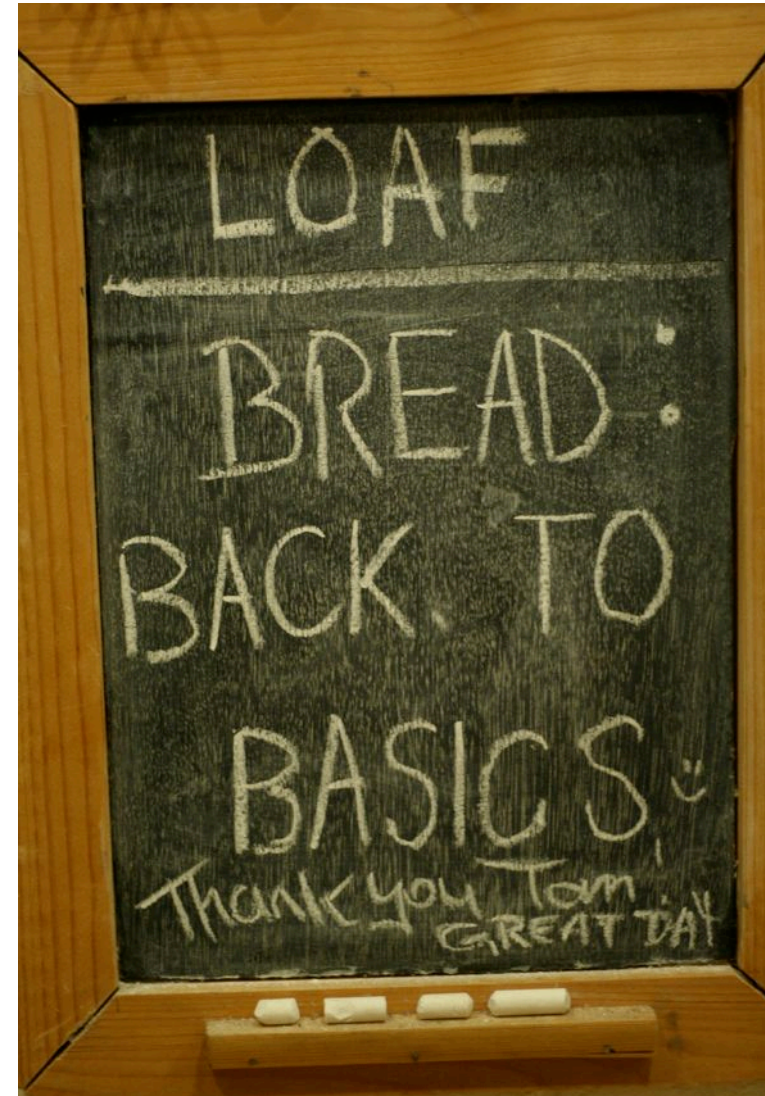 LOAF
BREAD:
BACK TO
BASICS
Thank you Tom!
GREAT DAY